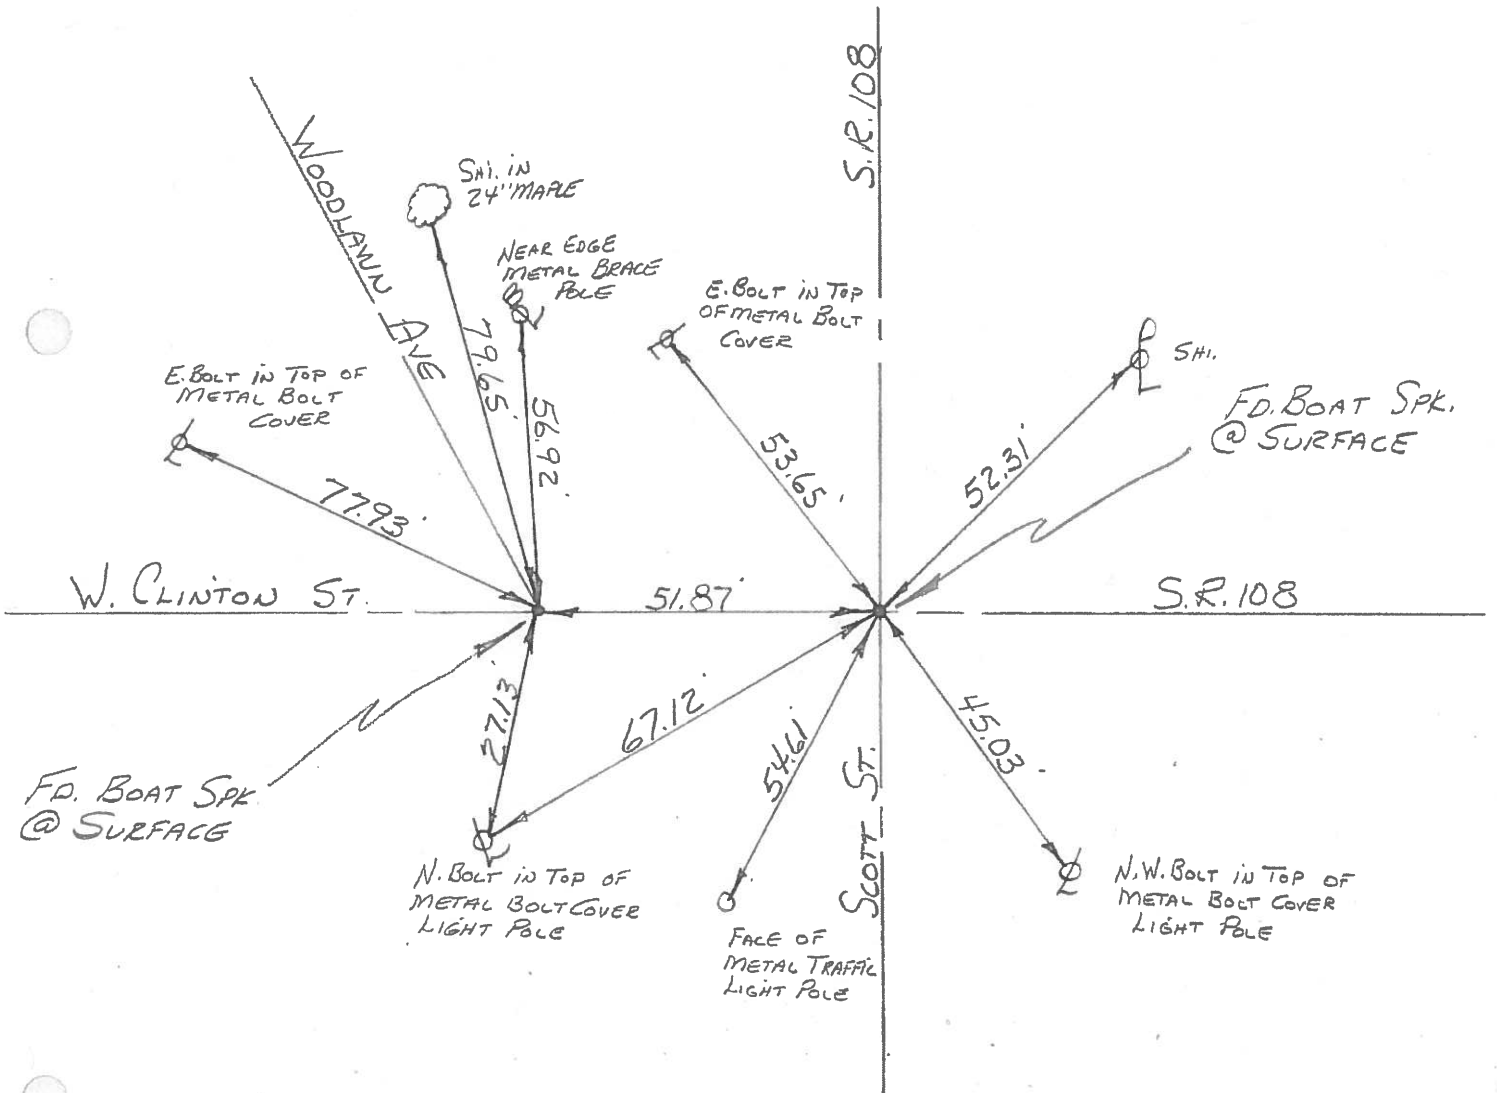 S.R. 108
WOODLAWN AVE
SHI. IN
24" MAPLE
NEAR EDGE
METAL BRACE
POLE
E. BOLT IN TOP
OF METAL BOLT
COVER
SHI.
E. BOLT IN TOP OF
METAL BOLT
COVER
FD. BOAT SPK.
@ SURFACE
79.65'
56.92'
53.65'
52.31'
77.93'
W. CLINTON ST.
51.87'
S.R. 108
27.13'
67.12'
54.61'
45.03'
SCOTT ST.
FD. BOAT SPK
@ SURFACE
N. BOLT IN TOP OF
METAL BOLT COVER
LIGHT POLE
FACE OF
METAL TRAFFIC
LIGHT POLE
N.W. BOLT IN TOP OF
METAL BOLT COVER
LIGHT POLE